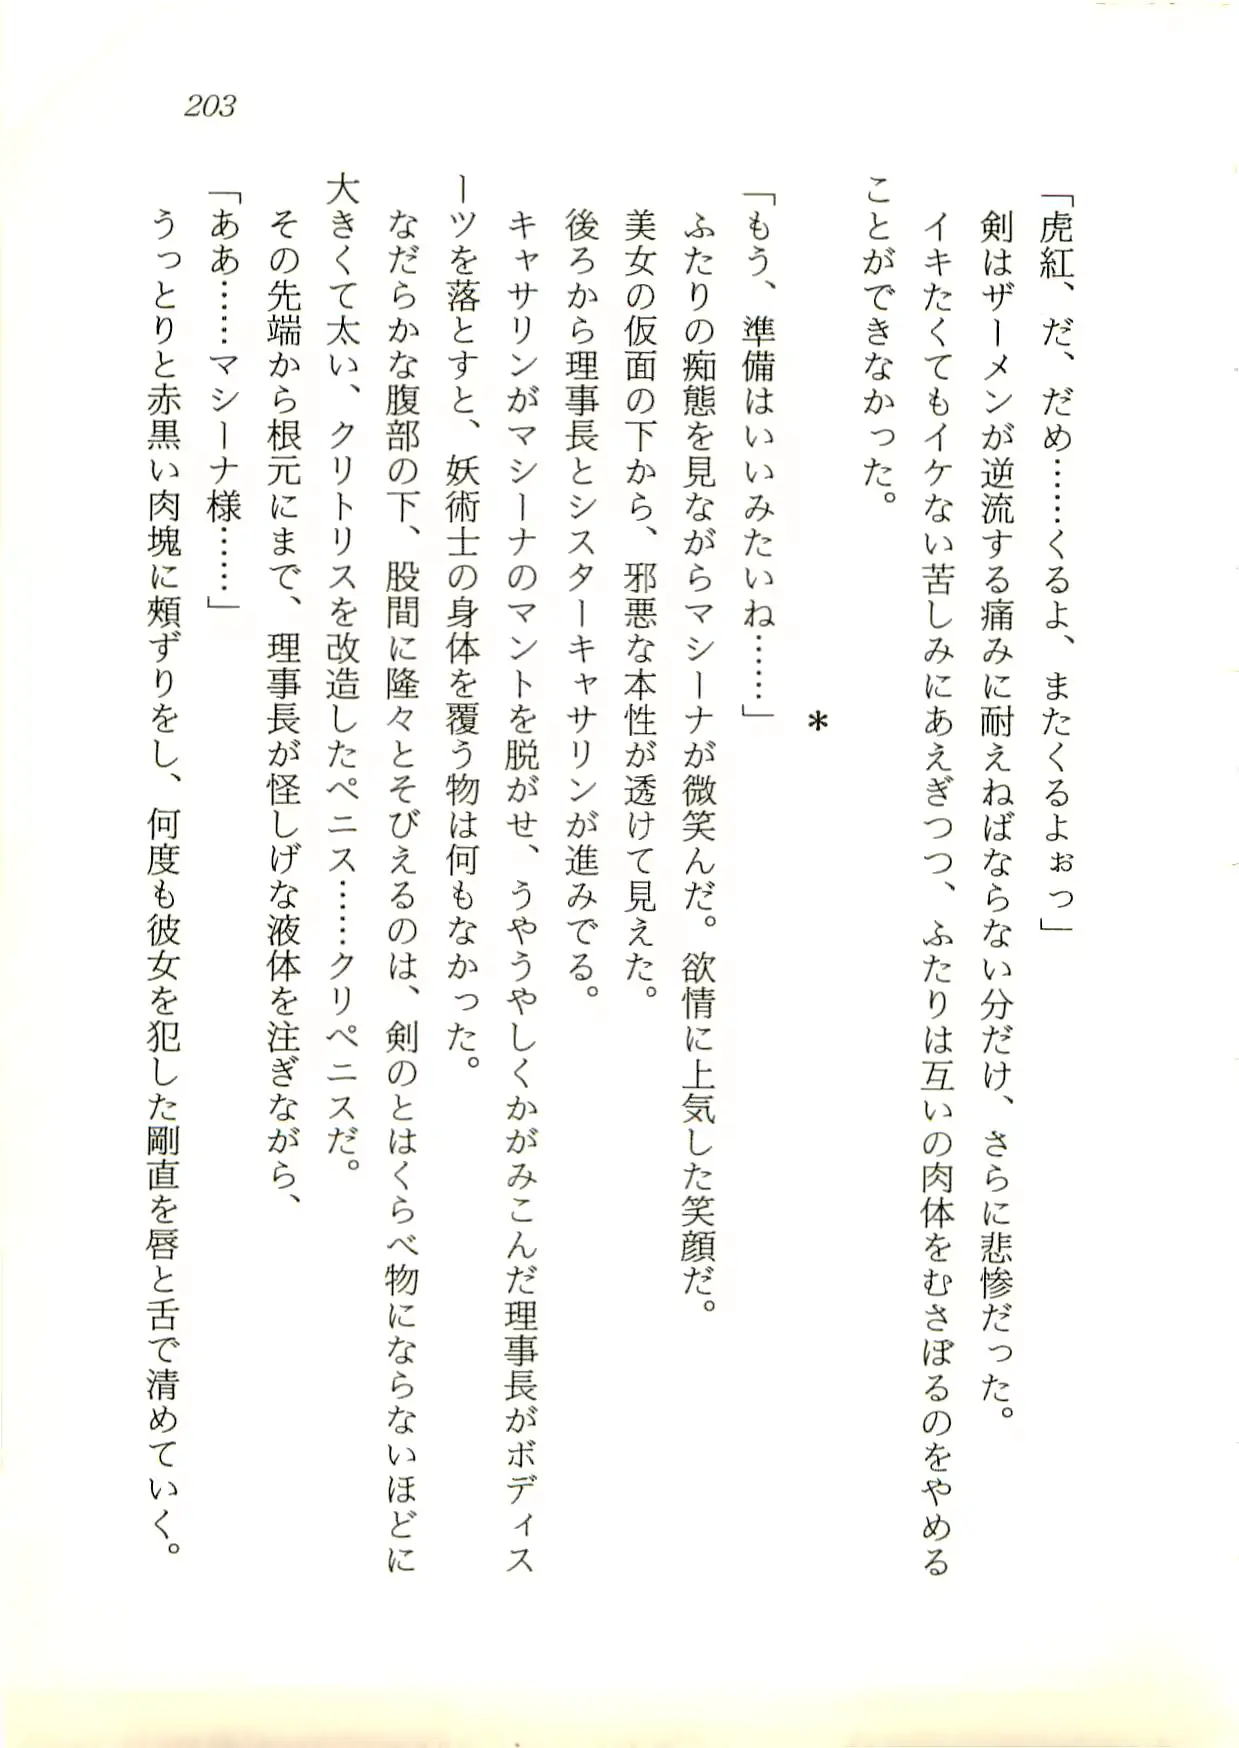 203
「虎紅、だ、だめ……くるよ、またくるよぉっ」
剣はザーメンが逆流する痛みに耐えねばならない分だけ、さらに悲惨だった。
イキたくてもイケない苦しみにあえぎつつ、ふたりは互いの肉体をむさぼるのをやめる
ことができなかった。
＊
「もう、準備はいいみたいね……」
ふたりの痴態を見ながらマシーナが微笑んだ。欲情に上気した笑顔だ。
美女の仮面の下から、邪悪な本性が透けて見えた。
後ろから理事長とシスターキャサリンが進みでる。
キャサリンがマシーナのマントを脱がせ、うやうやしくかがみこんだ理事長がボディス
ーツを落とすと、妖術士の身体を覆う物は何もなかった。
なだらかな腹部の下、股間に隆々とそびえるのは、剣のとはくらべ物にならないほどに
大きくて太い、クリトリスを改造したペニス……クリペニスだ。
その先端から根元にまで、理事長が怪しげな液体を注ぎながら、
「ああ……マシーナ様……」
うっとりと赤黒い肉塊に頰ずりをし、何度も彼女を犯した剛直を唇と舌で清めていく。